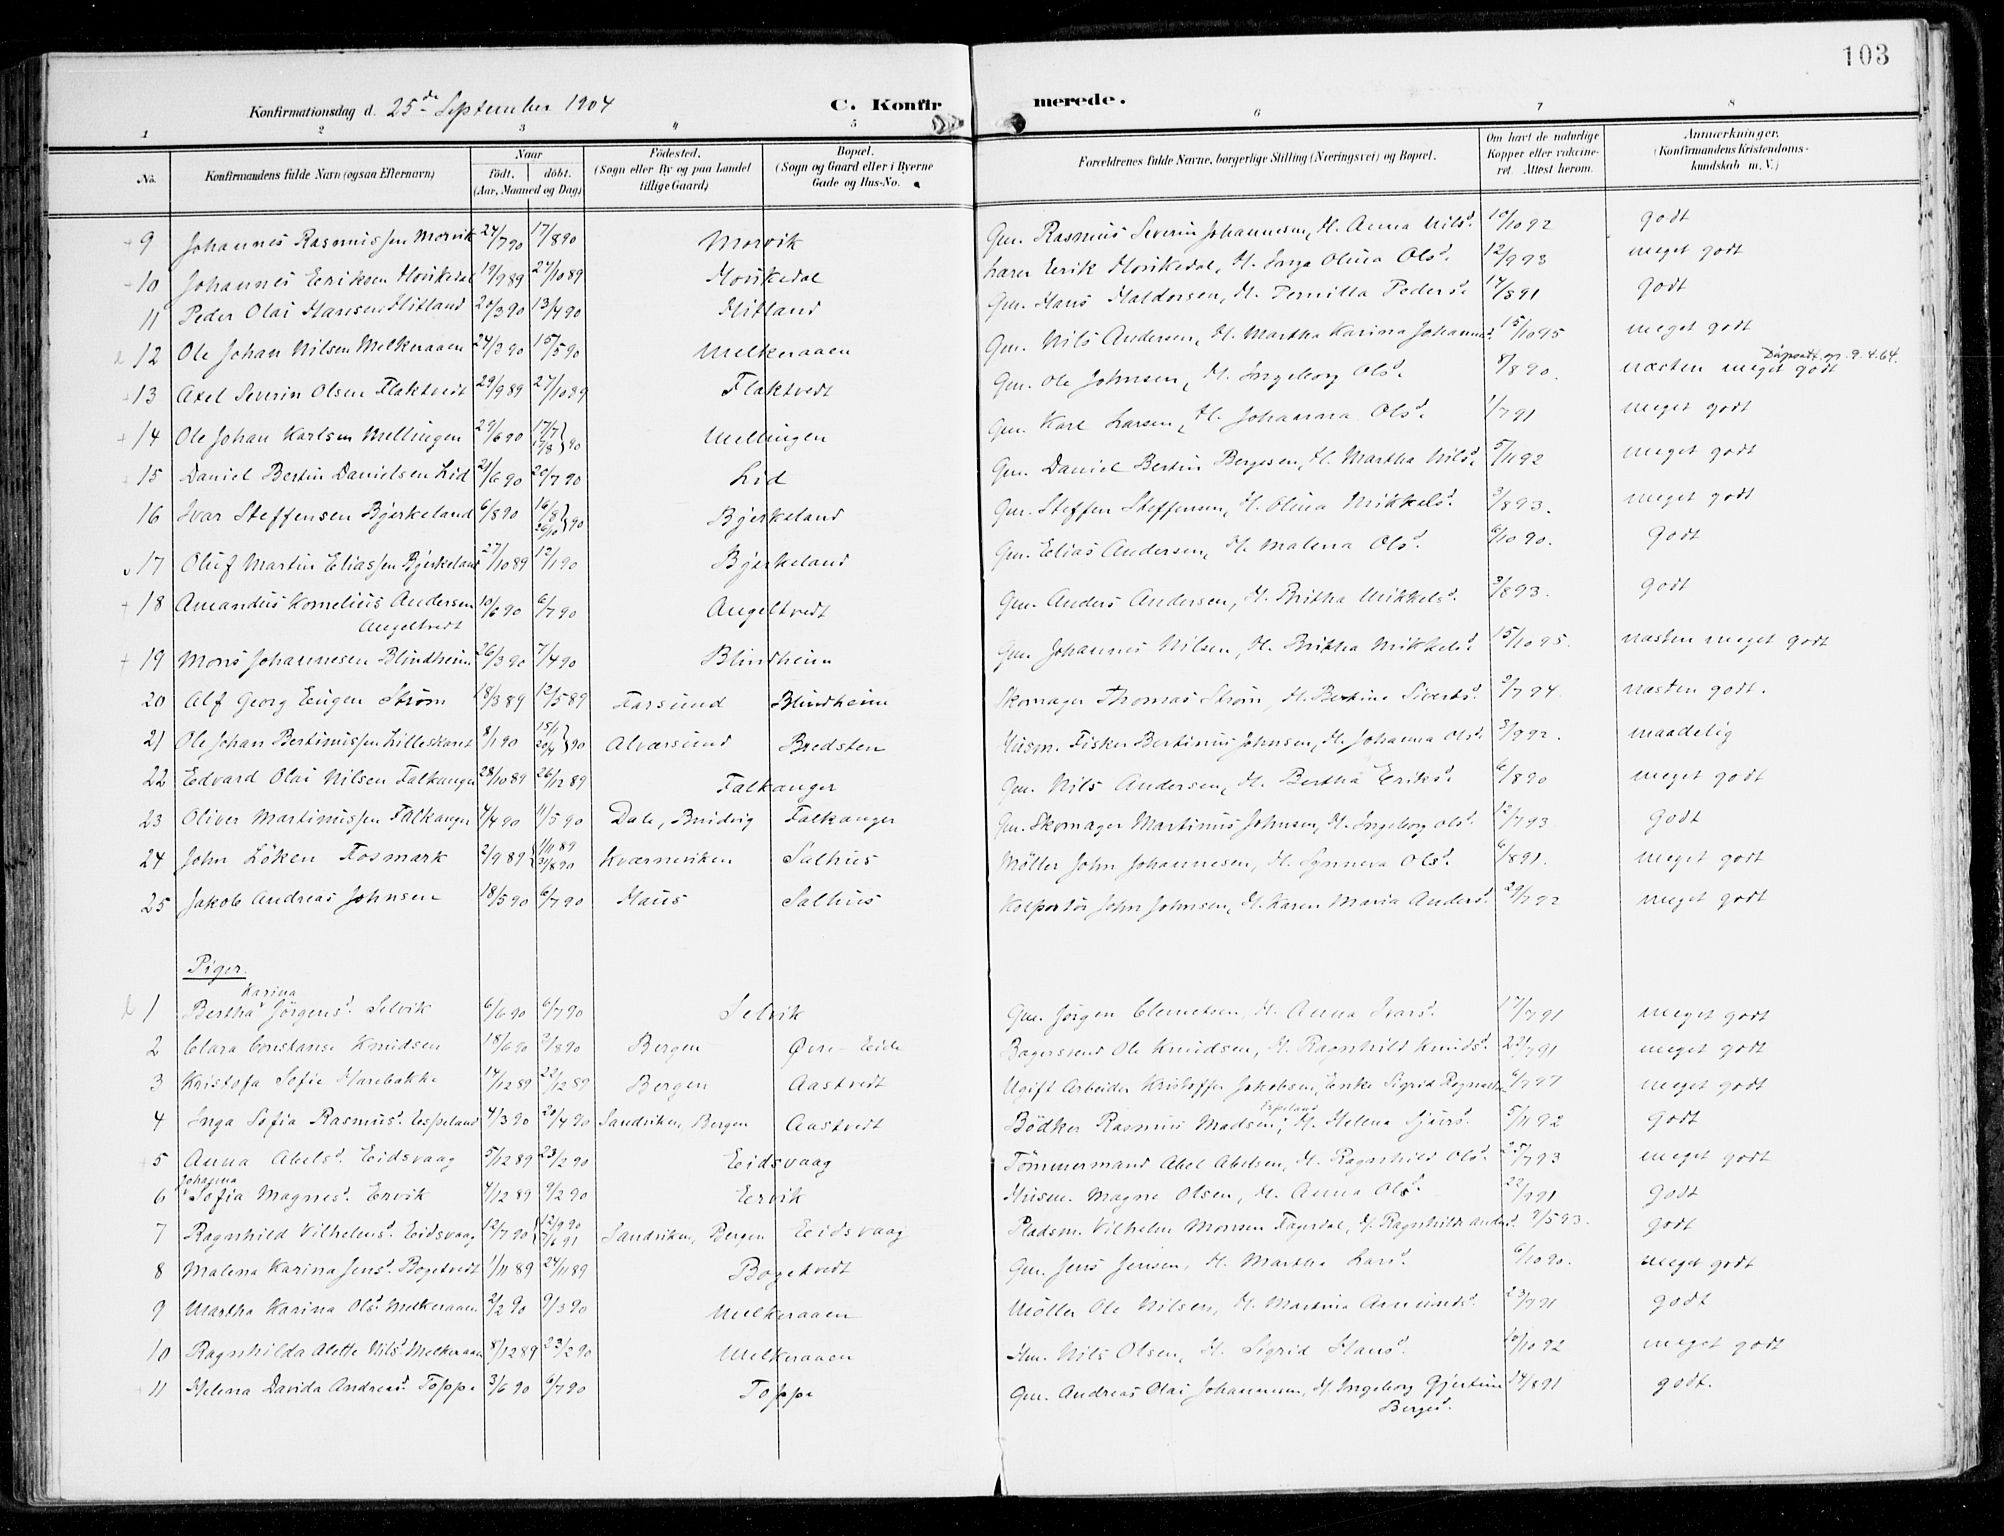 103
Konfirmationsdag d. 25de September 1904 C. Konfirmerede.
1 2 3 4 5 6 7 8
No. Konfirmandens fulde Navn (ogsaa Efternavn) Naar født. døbt. (Aar, Maaned og Dag) Fødested. (Sogn eller By og paa Landet tillige Gaard) Bopæl. (Sogn og Gaard eller i Byerne Gade og Hus-No. Forældrenes fulde Navne, borgerlige Stilling (Næringsvei) og Bopæl. Om havt de naturlige Kopper eller vakcineret. Attest herom. Anmærkninger. (Konfirmandens Kristendomskundskab m. V.)
9 Johannes Rasmussen Morvik 24/7 90 17/8 90 Morvik Gm. Rasmus Severin Johannesen, H. Anna Nilsd. 10/10 92 godt
10 Johannes Eriksen Hovikedal 19/9 89 27/10 89 Hovikedal Lærer Erik Hovikedal, H. Inga Olina Olsd. 12/9 93 meget godt
11 Peder Olai Hansen Hitland 20/3 90 13/4 90 Hitland Gm. Hans Haldorsen, H. Pernilla Pedersd. 17/8 91 godt
12 Ole Johan Nilsen Melkeraaen 24/2 90 15/5 90 Melkeraaen Gm. Nils Andersen, H. Martha Karina Johannesd. 15/10 95 meget godt
13 Axel Severin Olsen Flaktvedt 29/9 89 27/10 89 Flaktvedt Gm. Ole Johnsen, H. Ingeborg Olsd. 8/8 90. næsten meget godt Dåpsatt. 9.4.64.
14 Ole Johan Karlsen Mellingen 29/6 90 17/7 17/8 90 Mellingen Gm. Karl Larsen, H. Johanna Olsd. 1/7 91 meget godt
15 Daniel Bertin Danielsen Lid 21/6 90 20/7 90 Lid Gm. Daniel Bertin Bergesen, H. Martha Nilsd. 5/11 92 meget godt
16 Ivar Steffensen Bjerkeland 6/8 90 16/8 26/10 90 Bjerkeland Gm. Steffen Steffensen, H. Olina Mikkelsd. 3/8 93. meget godt
17 Oluf Martin Eliassen Bjerkeland 27/10 89 12/1 90 Bjerkeland Gm. Elias Andersen, H. Malena Olsd. 6/10 90. Godt
18 Amandus Kornelius Andersen Angeltvedt 10/6 90 6/7 90 Angeltvedt Gm. Anders Andersen, H. Britha Mikkelsd. 3/8 93. godt
19 Mons Johannesen Blindheim 26/3 90 7/4 90 Blindheim Gm. Johannes Nilsen, H. Britha Mikkelsd. 15/10 95. næsten meget godt
20 Alf Georg Eugen Strøm 18/3 89 12/5 89 Farsund Blindheim Skomager Thomas Strøm, H. Bertine Sivertsd. 2/7 94. næsten godt.
21 Ole Johan Bertinussen Lilleskaret 8/1 90 18/1 20/4 90 Alversund Bredsten Husm. Fisker Bertinus Johnsen, H. Johanna Olsd. 3/9 92. maadelig
22 Edvard Olai Nilsen Falkanger 28/10 89 26/12 89 Falkanger Gm. Nils Andersen, H. Bertha Eriksd. 6/8 90 meget godt
23 Oliver Martinussen Falkanger 4/4 90 11/5 90 Dale, Bruvig Falkanger Gm. Skomager Martinus Johnsen, H. Ingeborg Olsd. 12/7 93 Godt
24 John Løken Fosmark 2/9 89 1/11 89 31/8 90 Kværneviken Salhus Møller John Johannesen, H. Synneva Olsd. 6/8 91. meget godt
25 Jakob Andreas Johnsen 18/5 90 6/7 90 Haus Salhus Kolportør John Johnsen, H. Karen Maria Andersd. 29/7 92 meget godt
Piger.
1 Bertha Karina Jørgensd. Selvik 6/6 90 6/7 90 Selvik Gm. Jørgen Clemetsen, H. Anna Ivarsd. 17/7 91 meget godt
2 Clara Constanse Knudsen 18/6 90 3/8 90 Bergen Øvre-Eide Bagersvend Ole Knudsen, H. Ragnhild Knudsd. 22/7 91 meget godt
3 Kristofa Sofie Harebakke 14/12 89 22/12 89 Bergen Aastvedt Ugift Arbeider Kristoffer Jakobsen, Enke Sigrid 6/7 97 meget godt
4 Inga Sofia Rasmusd. Espeland 4/3 90 20/4 90 Sandviken, Bergen Aastvedt Bødker Rasmus Madsen Espeland, H. Helena Sjursd. 5/11 92 godt
5 Anna Abelsd. Eidsvaag 5/12 89 23/2 90 Eidsvaag Tømmermand Abel Abelsen, H. Ragnhild Olsd. 25/7 93 meget godt
6 Johanna Sofia Magnesd. Ervik 4/12 89 9/2 90 Ervik Husm. Magne Olsen, H. Anna Olsd. 22/7 91 godt
7 Ragnhild Vilhelmsd. Eidsvaag 12/7 90 12/9 90 7/6 91 Sandviken, Bergen Eidsvaag Pladsm. Vilhelm Monsen Fagerdal, H. Ragnhild Andersd. 9/5 93. godt
8 Malena Karina Jensd. Bogetvedt 1/11 89 24/11 89 Bogetvedt Gm. Jens Jensen, H. Martha Larsd. 6/10 90. meget godt
9 Martha Karina Olsd. Melkeraaen 2/2 90 9/3 90 Melkeraaen Møller Ole Nilsen, H. Martina Amundsd. 23/7 91 godt
10 Ragnhilda Alette Nilsd. Melkeraaen 8/12 89 23/2 90 Melkeraaen Hm. Nils Olsen, H. Sigrid Hansd. 10/10 92 meget godt
11 Helena Davida Andreasd. Toppe 3/6 90 6/7 90 Toppe Gm. Andreas Olai Johannesen, H. Ingeborg Gjertine Bergesd. 14/8 91 godt.